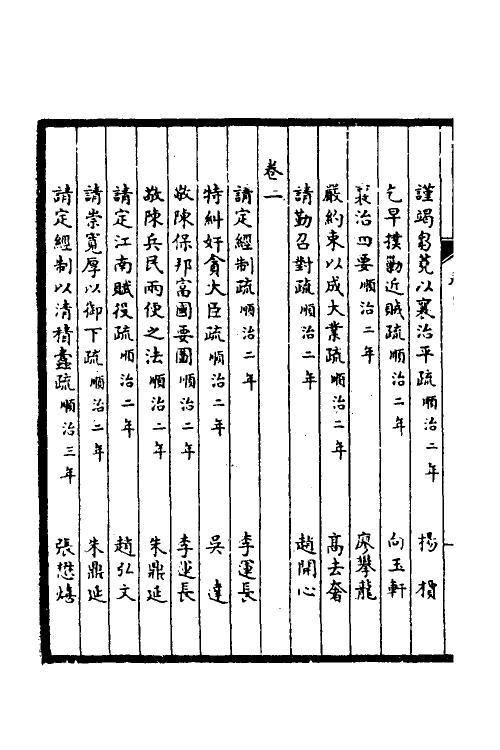 謹竭芻蕘以襄治平疏順治二年　楊槓
乞早撲勦近賊疏順治二年　向玉軒
襄治四要順治二年　廖攀龍
嚴約束以成大業疏順治二年　高去奢
請勤召對疏順治二年　趙開心
卷二
請定經制疏順治二年　李運長
特糾奸貪大臣疏順治二年　吳達
敬陳保邦富國要圖順治二年　李運長
敬陳兵民兩便之法順治二年　朱鼎延
請定江南賦役疏順治二年　趙弘文
請崇寬厚以御下疏順治二年　朱鼎延
請定經制以清積蠹疏順治三年　張懋熺